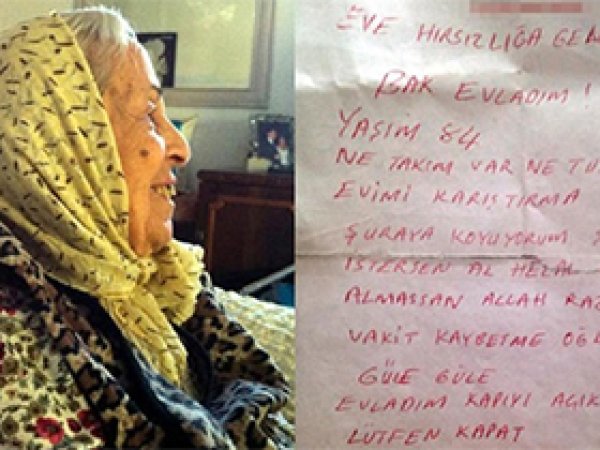 EVE HIRSIZLIĞA
BAK EVLADIM !
YAŞIM 84
NE TAKIM VAR NE
EVİMİ KARIŞTIRMA
ŞURAYA KOYUYORUM
İSTERSEN AL HELAL
ALMASSAN ALLAH
VAKİT KAYBETME
GÜLE GÜLE
EVLADIM KAPIYI
LÜTFEN KAPAT